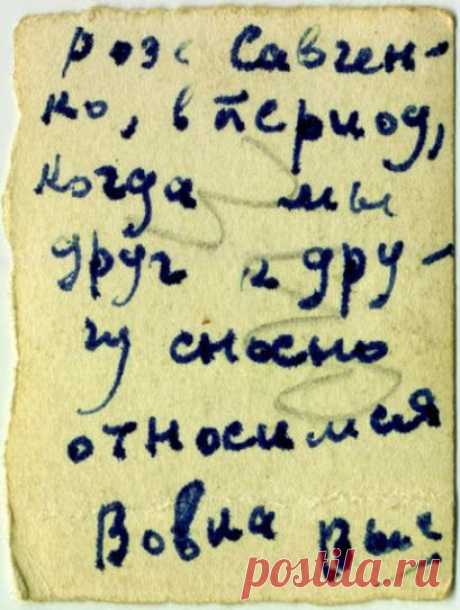 Розе Савчен-
ко, в период,
когда мы
друг к дру-
гу сносно
относимся
Вовка Выс
postila.ru